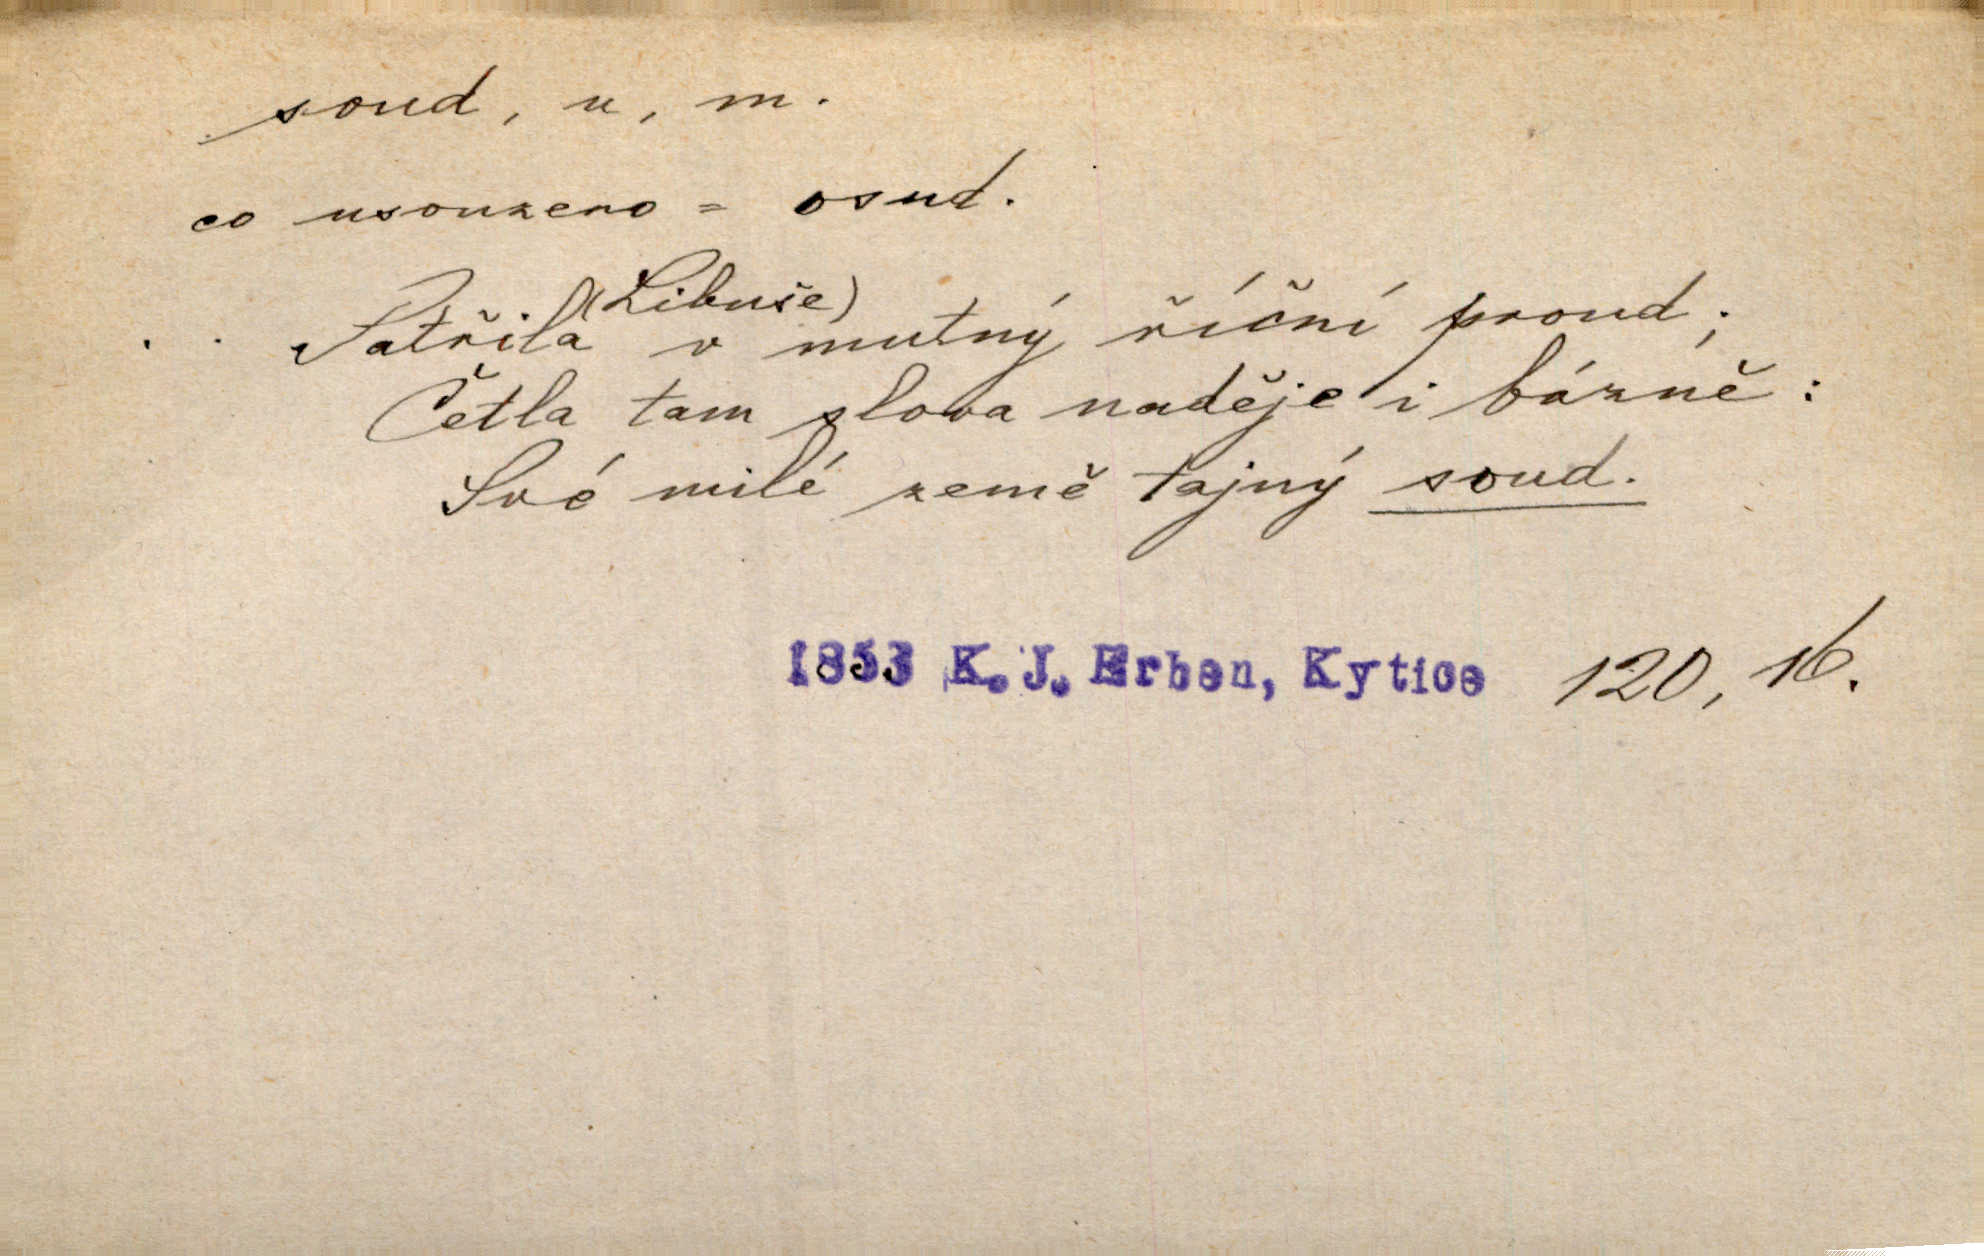 soud, u, m.
co usouzeno = osud.
Patřila (Libuše) v mutný říční proud;
Četla tam slova naděje i bázně:
Své milé země tajný soud.
1853 K. J. Erben, Kytice 120, 16.